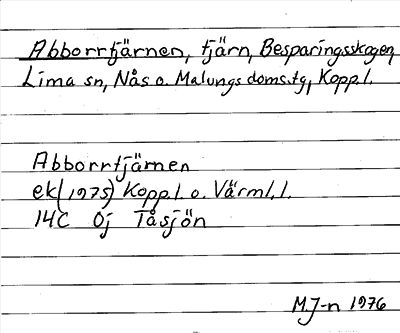 Abborrtjärnen, tjärn, Besparingsskogen,
Lima sn, Nås o. Malungs doms.tg, Kopp.l.
Abborrtjärnen
ek(1975) Kopp.l. o. Värml.l.
14C 0j Tåsjön
M.J-n 1976